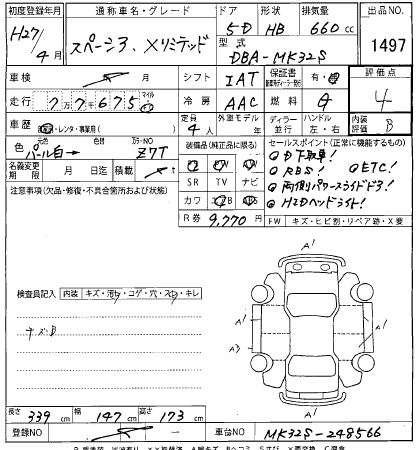 初度登録年月 通称車名・グレード ドア 形状 排気量 出品NO.
H27/4月 スペーシア、Xリミテッド 5D HB 660cc 1497
型式 DBA-MK32S
車検 月 シフト IAT 保証書 有・ 評価点
走行 7万7千675 マイル 冷房 AAC 燃料 G 4
車歴 自家用・レンタ・事業用( ) 定員 4人 外車モデル 年 ディーラー 並行 ハンドル 左・右 内装評価 B
色 元色 パール白→ 色替 カラーNO Z7T 装備品(純正品に限る) セールスポイント(正常に機能するもの)
名義変更期限 月 日迄 積載 t SR TV ナビ
D下取車!
RBS! ETC!
両側パワースライドドア!
HIDヘッドライト!
注意事項(欠品・修復・不具合箇所および状態) カワ
R券 9,770円 FW キズ・ヒビ割・リペア跡・X要
A1
検査員記入 内装 キズ・汚れ・コゲ・穴・スレ・キレ
A1 A1
A3
キズB
長さ 339cm 幅 147cm 高さ 173cm
A1
登録NO ― 車台NO MK32S-248566